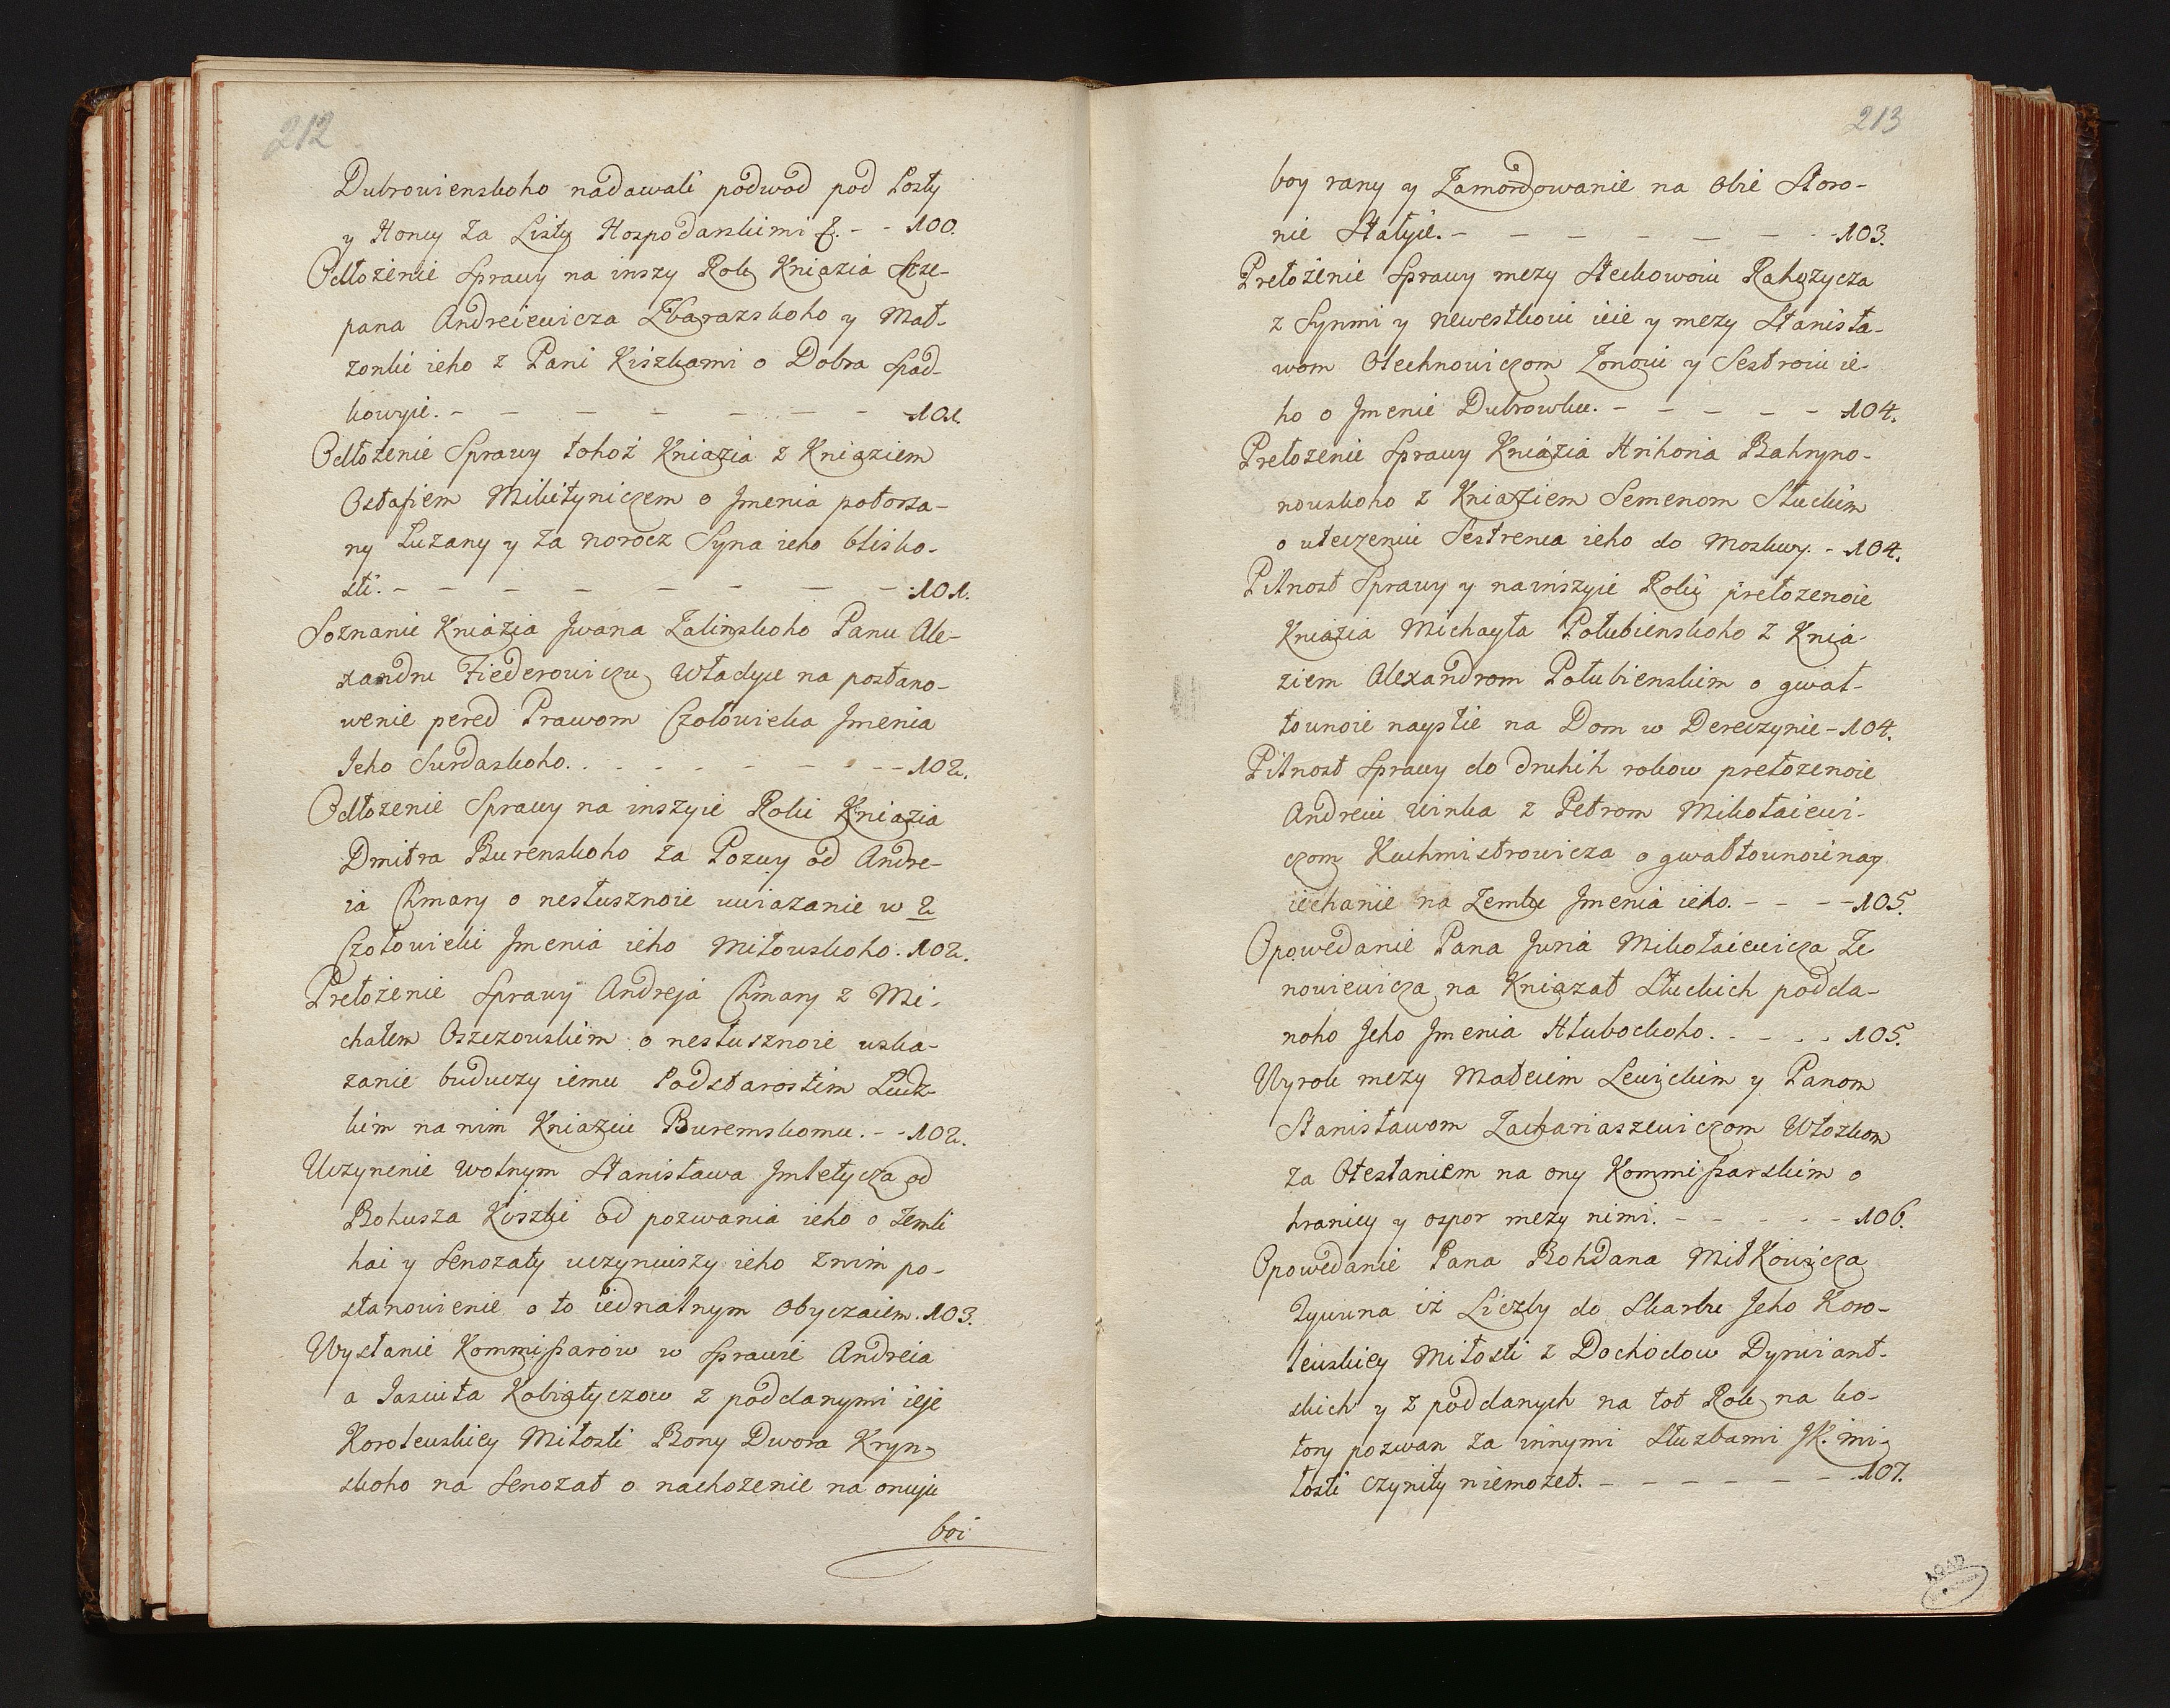 212
Dubrowienskoho nadawali podwod pod Posty
y Honcy za Listy Hospodarskimi &. - - 100.
Odłożenie Sprawy na inszy Rok Kniazia Scze-
pana Andreiewicza Zbarazskoho y Mał-
zonki ieho z Pani Kiszkami o Dobra Spad-
kowyie. - - - - - - - 101.
Odłożenie Sprawy tohoż Kniazia z Kniaziem
Ostafiem Mikityniczem o Jmenia połorza-
ny Łuzany y za norocz Syna ieho blisko-
sti. - - - - - - - 101.
Soznanie Kniazia Jwana Zalinskoho Panu Ale-
xandru Fiederowiczu Władyce na postano-
wenie pered Prawom Czołowieka Jmenia
Jeho Surdaskoho. - - - - - - 102.
Odłożenie Sprawy na inszyie Roki Kniazia
Dmitra Burenskoho za Pozwy od Andre-
ia Chmary o niesłusznoie uwiazanie w 2
Czołowieki Jmenia ieho Miłowskoho. 102.
Prełożenie Sprawy Andreja Chmary z Mi-
chałem Oszezowskim o nesłusznoie uska-
zanie buduczy iemu Podstarostim Łudz-
kim na nim Kniaziu Buremskomu. - - 102.
Uczynenie wolnym Stanisława Jmletycza od
Bohusza Kiszki od pozwania ieho o Zemli
hai y Senozaty uczyniwszy ieho z nim po-
stanowienie o to iednalnym obyczaiem. 103.
Wysłanie Kommissarow w sprawie Andreia
a Jaswiła Kobiatyczow z poddanymi ieje
Korolewskiey Miłosti Bony Dwora Kryn-
skoho na Senozat o nachożenie na onuju
boi
213
boy rany y Zamordowanie na obie Storo-
nie Stałyie. - - - - - - - 103.
Prełożenie Sprawy mezy Steckowoiu Rahozycza
z Synmi y newestkoiu ieie y mezy Stanisła-
wom Olechnowiczom Zonoiu y Sestroiu ie-
ho o Jmenie Dubrowku. - - - - - 104.
Prełożenie Sprawy Kniazia Hrihoria Bahryno-
nowskoho z Kniaziem Semenom Słuckim
o uteczeniu Sestrenca ieho do Moskwy. - 104.
Pilnost Sprawy y nainszyie Roki prełożenoie
Kniazia Michayła Połubienskoho z Knia-
ziem Alexandrom Połubienskim o gwał-
townoie nayśtie na Dom w Dereczynie - 104.
Pilnost Sprawy do druhih rokow prełożenoie
Andreiu Winka z Petrom Mikołaiewi-
czom Kuchmistrowicza o gwałtownoie nay-
iechanie na Zemlu Jmenia ieho. - - - - 105.
Opowedanie Pana Juria Mikołaiewicza Ze
nowiewicza na Kniazat Słuckich podda-
noho Jeho Jmenia Hłubockoho. - - - . 105.
Wyrok mezy Mateiem Lewickim y Panom
Stanisławom Zachariaszewiczom Włozkom
za Otesłaniem na ony Kommissarskim o
hranicy y ospor mezy nimi. - - - - - 106.
Opowedanie Pana Bohdana Mitkowicza
Zywuna iż Liczby do Skarbu Jeho Koro-
lewskiey Miłosti z Dochodow Dyrwiant-
skich y z poddanych na tot Rok na ko-
tory pozwan za innymi Służbami JK. mi-
łosti czynity niemożet. - - - - - - - 107.
AGAD